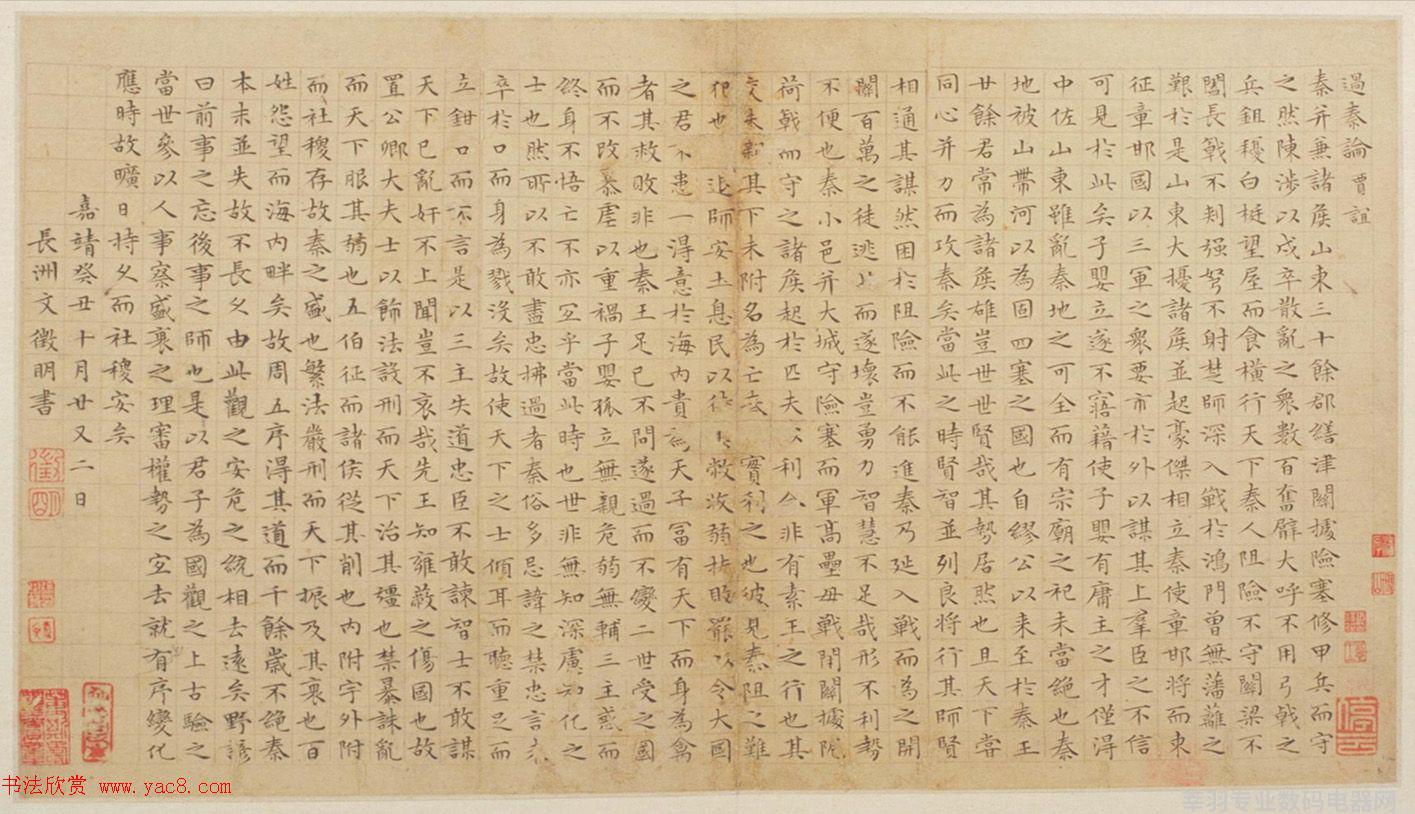 過秦論 賈誼
秦并兼諸侯山東三十餘郡繕津關據險塞修甲兵而守
之然陳涉以戍卒散亂之衆數百奮臂大呼不用弓戟之
兵鉏耰白梃望屋而食橫行天下秦人阻險不守關梁不
闔長戟不刺强弩不射楚師深入戰於鴻門曾無藩籬之
艱於是山東大擾諸侯並起豪傑相立秦使章邯將而東
征章邯國以三軍之衆要市於外以謀其上羣臣之不信
可見於此矣子嬰立遂不寤藉使子嬰有庸主之才僅得
中佐山東雖亂秦地之可全而有宗廟之祀未當絕也秦
地被山帶河以為固四塞之國也自繆公以来至於秦王
廿餘君常為諸侯雄豈世世賢哉其勢居然也且天下甞
同心并力而攻秦矣當此之時賢智並列良将行其師賢
相通其謀然困於阻險而不能進秦乃延入戰而為之開
關百萬之徒逃 而遂壞豈勇力智慧不足哉形不利勢
不便也秦小邑并大城守險塞而軍高壘毋戰閉關據阨
荷戟而守之諸侯起於匹夫 利 非有素王之行也其
交未 其下未附名為亡 實利之也彼見秦阻之難
犯也 退師安土息民以 敝收弱 罷以令大國
之君不患一得意於海内貴為天子冨有天下而身為禽
者其救敗非也秦王足已不問遂過而不變二世受之國
而不改暴虐以重禍子嬰孤立無親危弱無輔三主惑而
終身不悟亡不亦宐乎當此時也世非無知深慮知化之
士也然所以不敢盡忠拂過者秦俗多忌諱之禁忠言未
卒於口而身為戮没矣故使天下之士傾耳而聽重足而
立鉗口而不言是以三主失道忠臣不敢諫智士不敢謀
天下已亂奸不上聞豈不哀哉先王知雍蔽之傷國也故
置公卿大夫士以飾法設刑而天下治其彊也禁暴誅亂
而天下服其弱也五伯征而諸侯從其削也内附宇外附
而社稷存故秦之盛也繁法嚴刑而天下振及其衰也百
姓怨望而海内畔矣故周五序得其道而千餘歳不絕秦
本末並失故不長乆由此觀之安危之統相去遠矣野諺
曰前事之忘後事之師也是以君子為國觀之上古驗之
當世參以人事察盛衰之理審權勢之宐去就有序變化
應時故曠日持乆而社稷安矣
嘉靖癸丑十月廿又二日
長洲文徵明書
书法欣赏 www.yac8.com
幸羽专业数码电器网